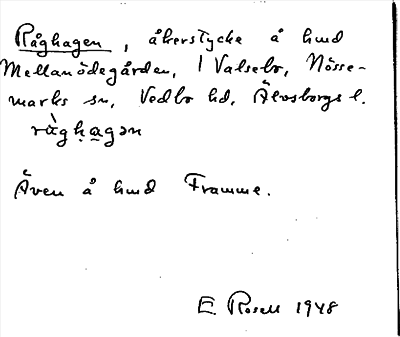 Råghagen, åkerstycke å hmd
Mellanödegården, 1 Valsebo, Nösse-
marks sn, Vedbo hd, Älvsborgs l.
ràghagən
Även å hmd Framme.
E. Rosell 1948